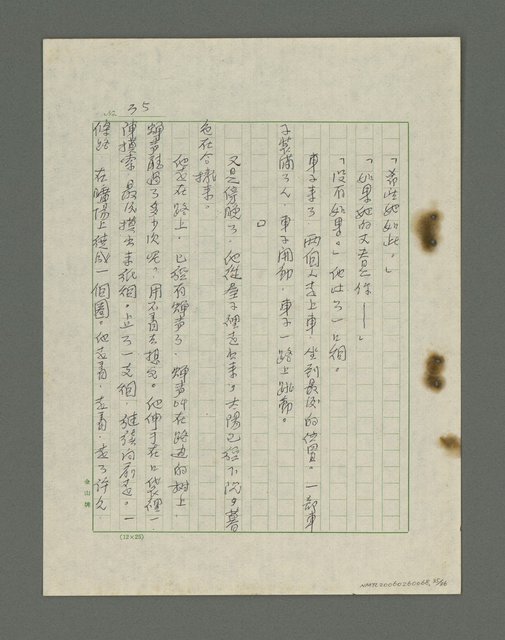 No. 35
「希望她如此。」
「如果她的丈夫是你——」
「沒有如果。」他吐了一口煙。
車子來了，兩個人走上車，坐到最後的位置。一部車
子裝滿了人，車子開動，車子一路上跳動。
□
又是傍晚了，他從屋子裡走出來，太陽已經下
色在合攏來。
他走在路上，已經有蟬聲了，蟬聲叫在路邊的樹上，
蟬聲聽過了多少次呢？用不著去想它。他伸手在口袋裡一
陣摸索，最後摸出來紙煙。上了一支煙，繼續向前走。一
條路，在 陽上繞成一個圈。他走著，走著，走了許久，
金山牌
(12×25)
NMTL20060260068, 35/36